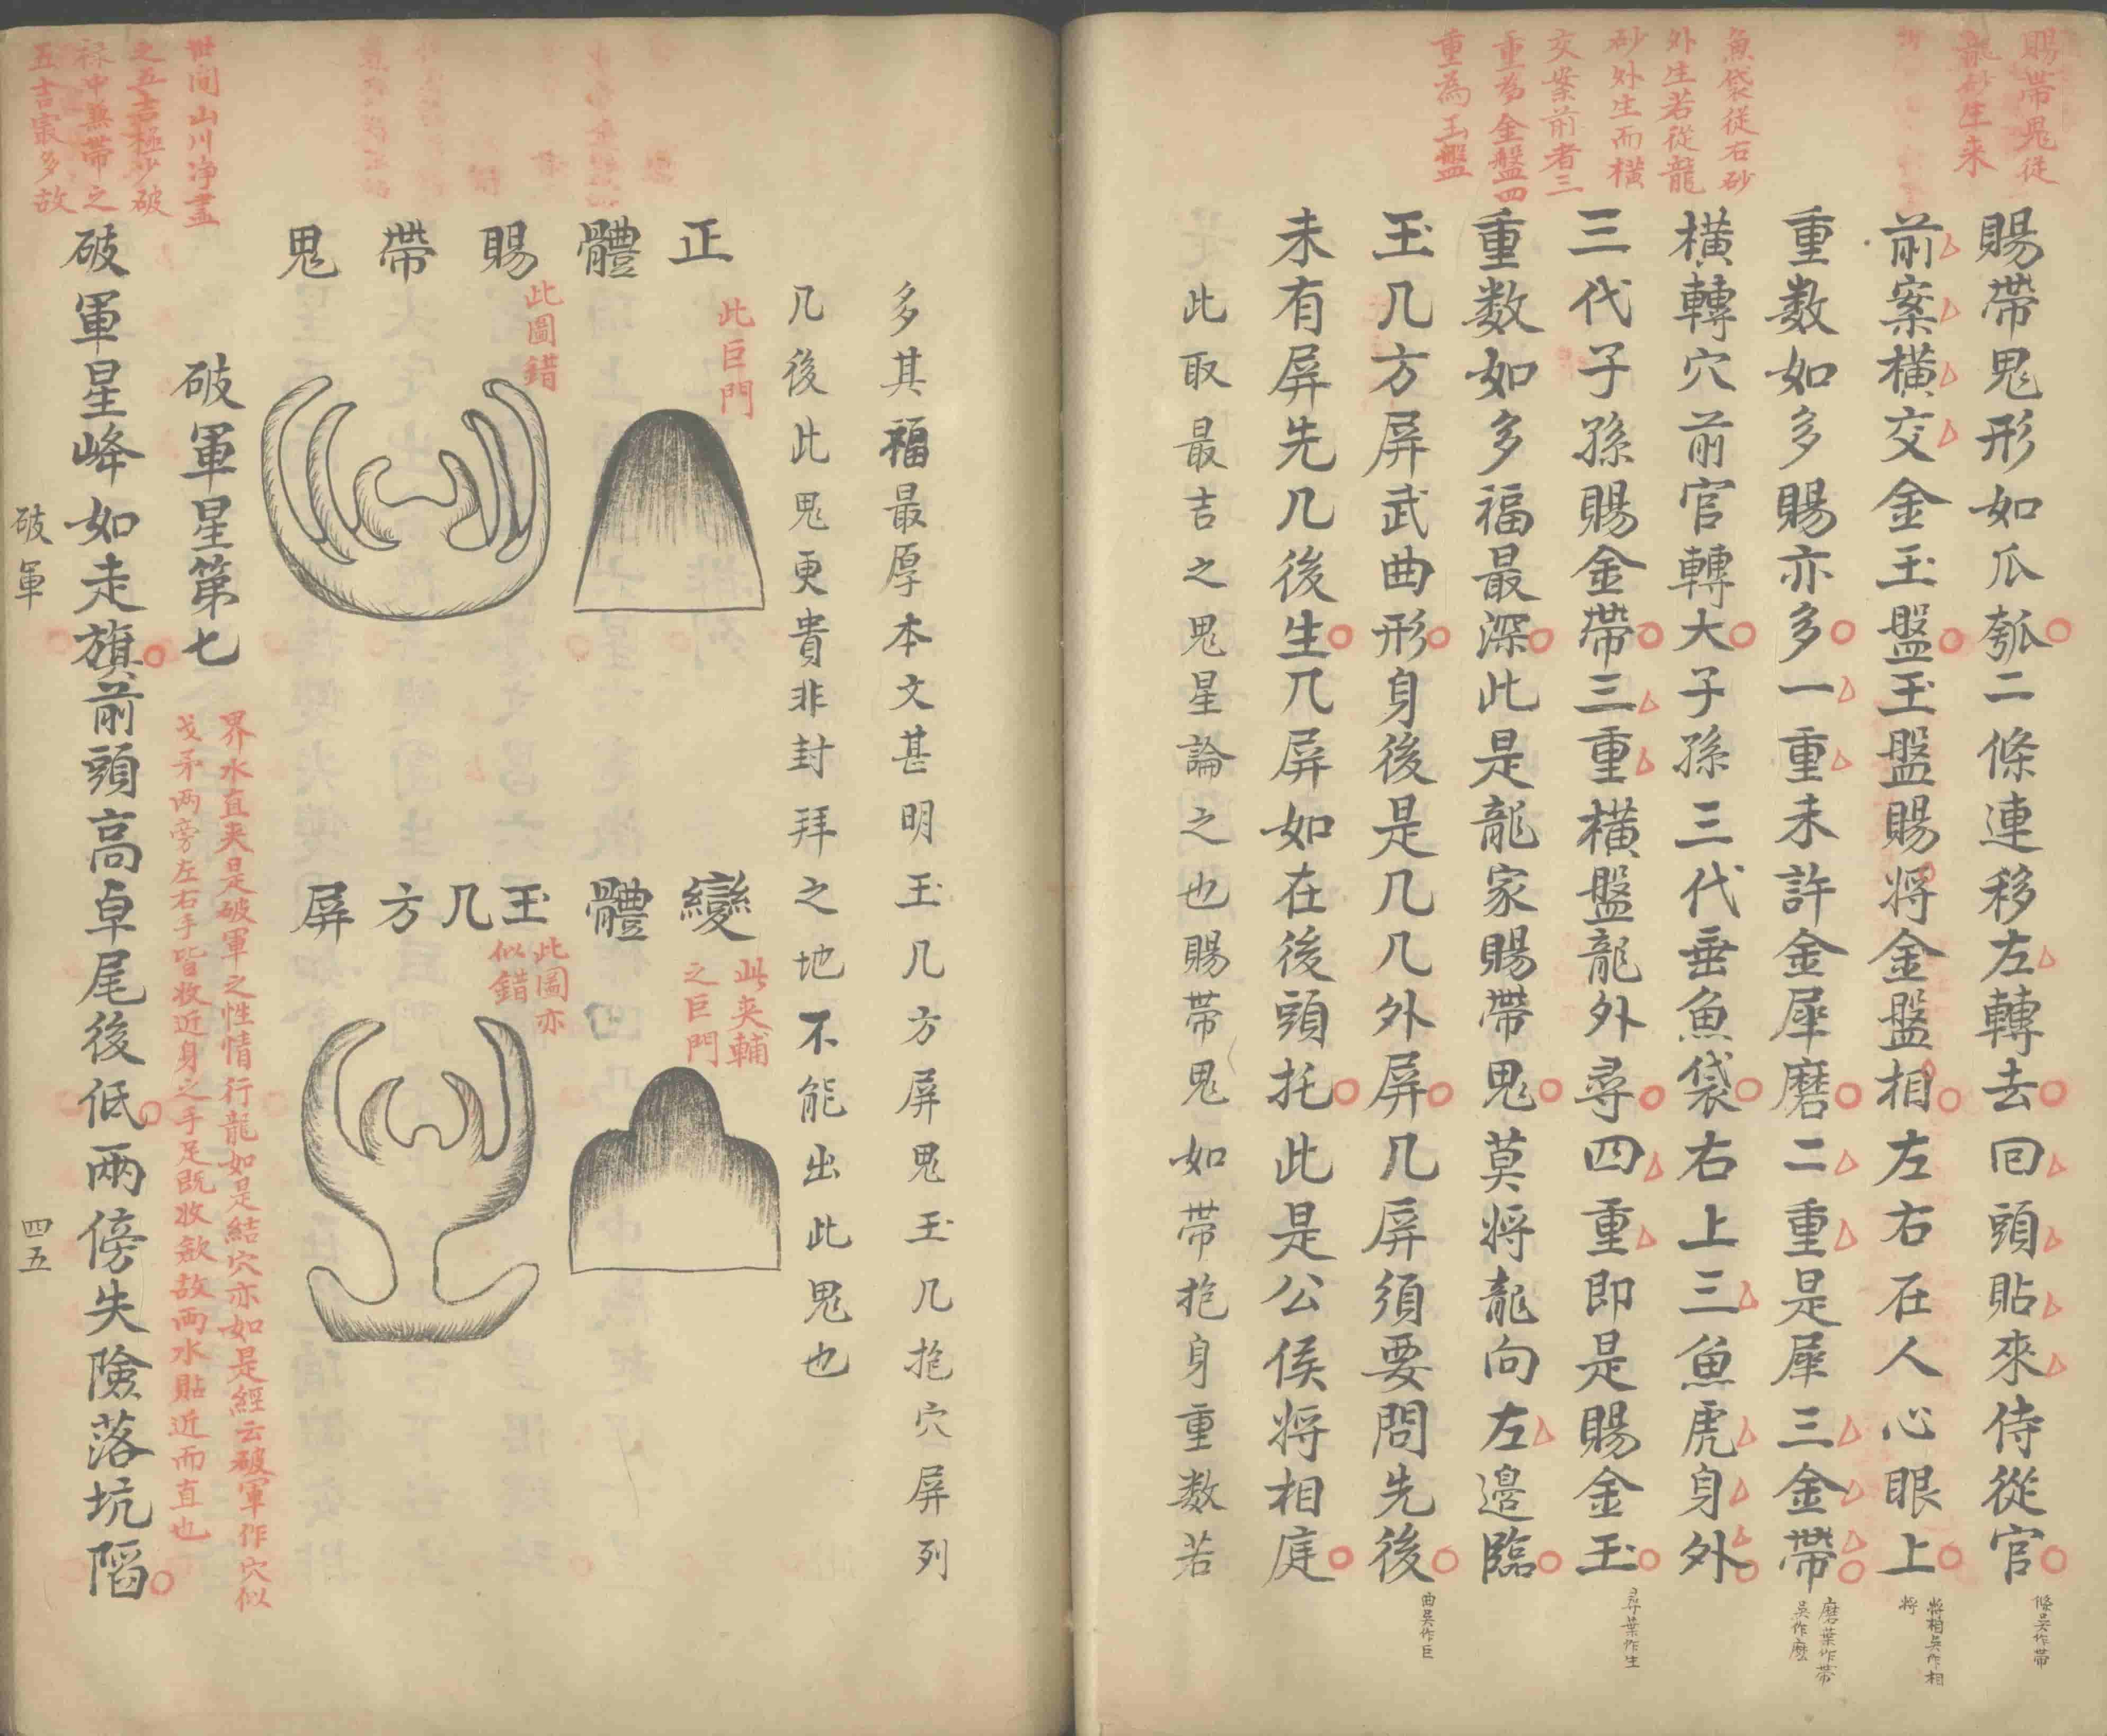 賜帶鬼從
龍砂生来
魚袋從右砂
外生若從龍
砂外生而橫
交案前者三
重為金盤四
重為玉盤
賜帶鬼形如瓜瓠二條連移左轉去回頭貼來侍從官
前案橫交金玉盤玉盤賜将金盤相左右在人心眼上
重数如多賜亦多一重未許金犀磨二重是犀三金帶
橫轉穴前官轉大子孫三代垂魚袋右上三魚虎身外
三代子孫賜金帶三重橫盤龍外尋四重即是賜金玉
重数如多福最深此是龍家賜帶鬼莫将龍向左邊臨
玉几方屏武曲形身後是几几外屏几屏須要問先後
未有屏先几後生几屏如在後頭托此是公侯将相庭
此取最吉之鬼星論之也賜帶鬼如带抱身重数若
條吴作帶
將相吴作相
将
磨葉作帯
吴作麽
尋葉作生
曲吴作巨
多其福最厚本文甚明玉几方屏鬼玉几抱穴屏列
几後此鬼更貴非封拜之地不能出此鬼也
正體賜帶鬼
此巨門
此圖錯
變體玉几方屏
此夹輔
之巨門
此圖亦
似錯
破軍星第七
界水直夹是破軍之性情行龍如是結穴亦如是經云破軍作穴似
戈矛两旁左右手皆收近身之手足既收歛故两水貼近而直也
破軍星峰如走旗前頭高卓尾後低兩傍失險落坑陷
世间山川净盡
之五吉極少破
禄中無帶之
五吉最多故
破軍
四五